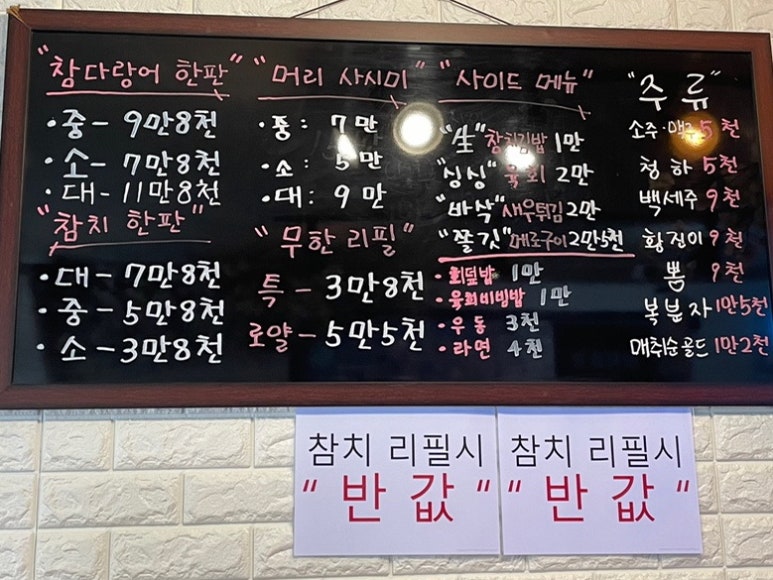 "참다랑어 한판"
· 중 - 9만8천
· 소 - 7만8천
· 대 - 11만8천
"참치 한판"
· 대 - 7만8천
· 중 - 5만8천
· 소 - 3만8천
"머리 사시미"
· 중: 7만
· 소: 5만
· 대: 9만
"무한리필"
특 - 3만8천
로얄 - 5만5천
"사이드 메뉴"
"生" 참치김밥 1만
"싱싱" 육회 2만
"바삭" 새우튀김 2만
"쫄깃" 메로구이 2만5천
· 회덮밥 1만
· 육회비빔밥 1만
· 우동 3천
· 라면 4천
"주류"
소주·맥주 5천
청하 5천
백세주 9천
황진이 9천
뽐 9천
복분자 1만5천
매취순골드 1만2천
참치 리필시
"반값"
참치 리필시
"반값"